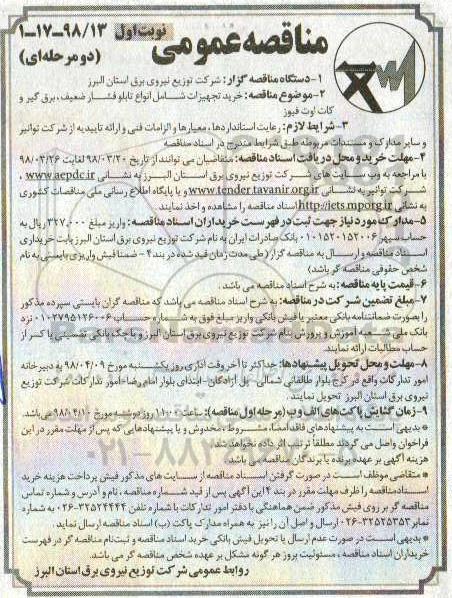 نوبت اول
۱-۱۷-۹۸/۱۳
مناقصه عمومی
(دو مرحله‌ای)
۱-دستگاه مناقصه گزار: شرکت توزیع نیروی برق استان البرز
۲-موضوع مناقصه: خرید تجهیزات شامل انواع تابلو فشار ضعیف، برق گیر و
کات اوت فیوز
۳-شرایط لازم: رعایت استانداردها، معیارها و الزامات فنی و ارائه تاییدیه از شرکت توانیر
و سایر مدارک و مستندات مربوطه طبق شرایط مندرج در اسناد مناقصه
۴-مهلت خرید و محل دریافت اسناد مناقصه: متقاضیان می توانند از تاریخ ۹۸/۰۳/۲۰ لغایت ۹۸/۰۳/۲۶
با مراجعه به وب سایت های شرکت توزیع نیروی برق استان البرز به نشانی www.aepdc.ir و
شرکت توانیر به نشانی www.tender.tavanir.org.ir و یا پایگاه اطلاع رسانی ملی مناقصات کشوری
به نشانی http://iets.mporg.ir اسناد مناقصه را مشاهده و اخذ نمایند
۵-مدارک مورد نیاز جهت ثبت در فهرست خریداران اسناد مناقصه: واریز مبلغ ۳۲۷,۰۰۰ ریال به
حساب سپهر ۰۱۰۱۵۲۰۱۵۲۰۰۶ بانک صادرات ایران به نام شرکت توزیع نیروی برق استان البرز بابت خریداری
اسناد مناقصه و ارسال به مناقصه گزار (طی مدت زمان قید شده در بند ۴ - ضمنا فیش واریزی بایستی به نام
شخص حقوقی مناقصه گر باشد)
۶-قیمت پایه مناقصه: به شرح اسناد مناقصه می باشد.
۷-مبلغ تضمین شرکت در مناقصه: به شرح اسناد مناقصه می باشد که مناقصه گران بایستی سپرده مذکور
را بصورت ضمانتنامه بانکی معتبر یا فیش بانکی واریز مبلغ فوق به شماره حساب ۰۱۰۲۷۹۵۱۲۶۰۰۶ نزد
بانک ملی شعبه آموزش و پرورش بنام شرکت توزیع نیروی برق استان البرز و یا چک بانکی تضمینی یا کسر از
حساب مطالبات ارائه نمایند.
۸-مهلت و محل تحویل پیشنهادها: حداکثر تا آخر وقت اداری روز یکشنبه مورخ ۹۸/۰۴/۰۹ به دبیرخانه
امور تدارکات واقع در کرج بلوار طالقانی شمالی- پل آزادگان- ابتدای بلوار امام رضا- امور تدارکات شرکت توزیع
نیروی برق استان البرز تحویل نمایند.
۹-زمان گشایش پاکت های الف و ب (مرحله اول مناقصه): ساعت ۱۱:۰۰ روز دوشنبه مورخ ۹۸/۰۴/۱۰ می باشد.
* بدیهی است به پیشنهادهای فاقد امضا، مشروط، مخدوش و یا پیشنهادهایی که پس از مهلت مقرر در این
فراخوان واصل می گردند مطلقا ترتیب اثر داده نخواهد شد.
هزینه آگهی بر عهده برنده یا برندگان مناقصه می باشد.
* متقاضی موظف است در صورت گرفتن اسناد مناقصه از سایت های مذکور فیش پرداخت هزینه خرید
اسناد مناقصه را ظرف مهلت مقرر در بند ۴ این آگهی پس از قید شماره مناقصه، نام و آدرس و شماره تماس
مناقصه گر بر روی فیش مذکور ضمن هماهنگی با دفتر امور تدارکات با شماره تلفن ۳۲۵۲۴۴۴۴-۰۲۶ به شماره
نمابر ۳۲۵۲۵۳۵۳-۰۲۶ ارسال و اصل آن را نیز به همراه مدارک پاکت (ب) اسناد مناقصه ارسال نماید.
* بدیهی است در صورت عدم ارسال یا تحویل فیش بانکی خرید اسناد مناقصه و ثبت نام مناقصه گر در فهرست
خریداران اسناد مناقصه، مسئولیت بروز هر گونه مشکل بر عهده شخص مناقصه گر می باشد.
روابط عمومی شرکت توزیع نیروی برق استان البرز